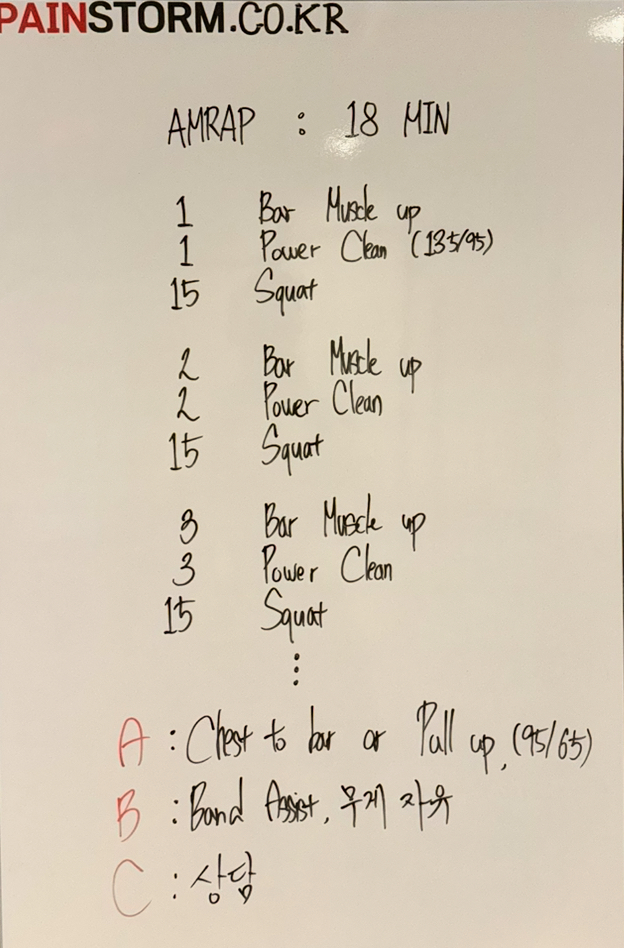 PAINSTORM.CO.KR
AMRAP : 18 MIN
1 Bar Muscle up
1 Power Clean (135/95)
15 Squat
2 Bar Muscle up
2 Power Clean
15 Squat
3 Bar Muscle up
3 Power Clean
15 Squat
⋮
A : Chest to bar or Pull up, (95/65)
B : Band Assist, 무게 자유
C : 상담